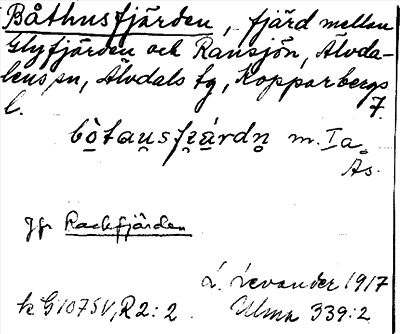 Båthusfjärden, fjärd mellan
Glyfjärden och Ransjön, Älvda-
lens sn, Älvdals tg, Kopparbergs
l. 7.
bo̱tau̯sfjärdn̥ m. Ia.
Ås.
jfr Rackfjärden
L. Levander 1917
k G1075V, R2:2. Ulma 339:2